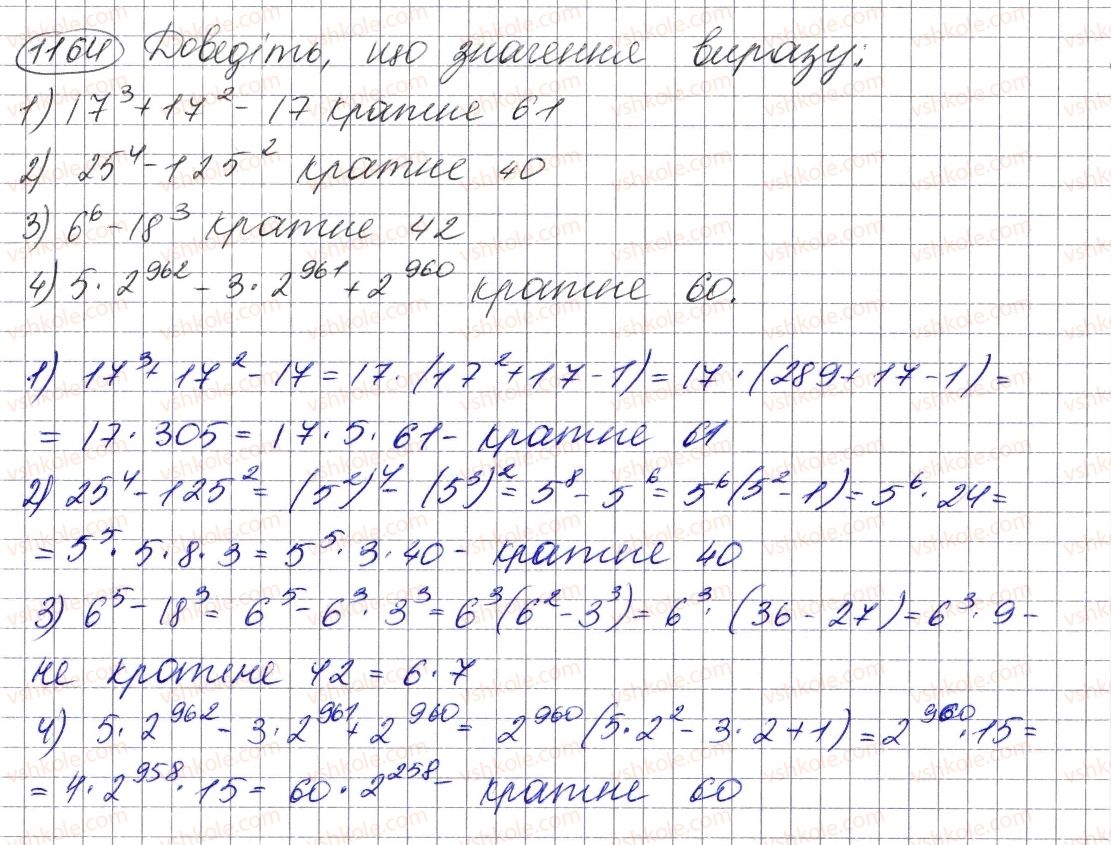 1164 Доведіть, що значення виразу:
1) 17³ + 17² - 17 кратне 61
2) 25⁴ - 125² кратне 40
3) 6⁶ - 18³ кратне 42
4) 5 · 2⁹⁶² - 3 · 2⁹⁶¹ + 2⁹⁶⁰ кратне 60.
1) 17³ + 17² - 17 = 17 · (17² + 17 - 1) = 17 · (289 + 17 - 1) =
= 17 · 305 = 17 · 5 · 61 - кратне 61
2) 25⁴ - 125² = (5²)⁴ - (5³)² = 5⁸ - 5⁶ = 5⁶(5² - 1) = 5⁶ · 24 =
= 5⁵ · 5 · 8 · 3 = 5⁵ · 3 · 40 - кратне 40
3) 6⁵ - 18³ = 6⁵ - 6³ · 3³ = 6³(6² - 3³) = 6³ · (36 - 27) = 6³ · 9 -
не кратне 42 = 6 · 7
4) 5 · 2⁹⁶² - 3 · 2⁹⁶¹ + 2⁹⁶⁰ = 2⁹⁶⁰(5 · 2² - 3 · 2 + 1) = 2⁹⁶⁰ · 15 =
= 4 · 2⁹⁵⁸ · 15 = 60 · 2²⁵⁸ - кратне 60